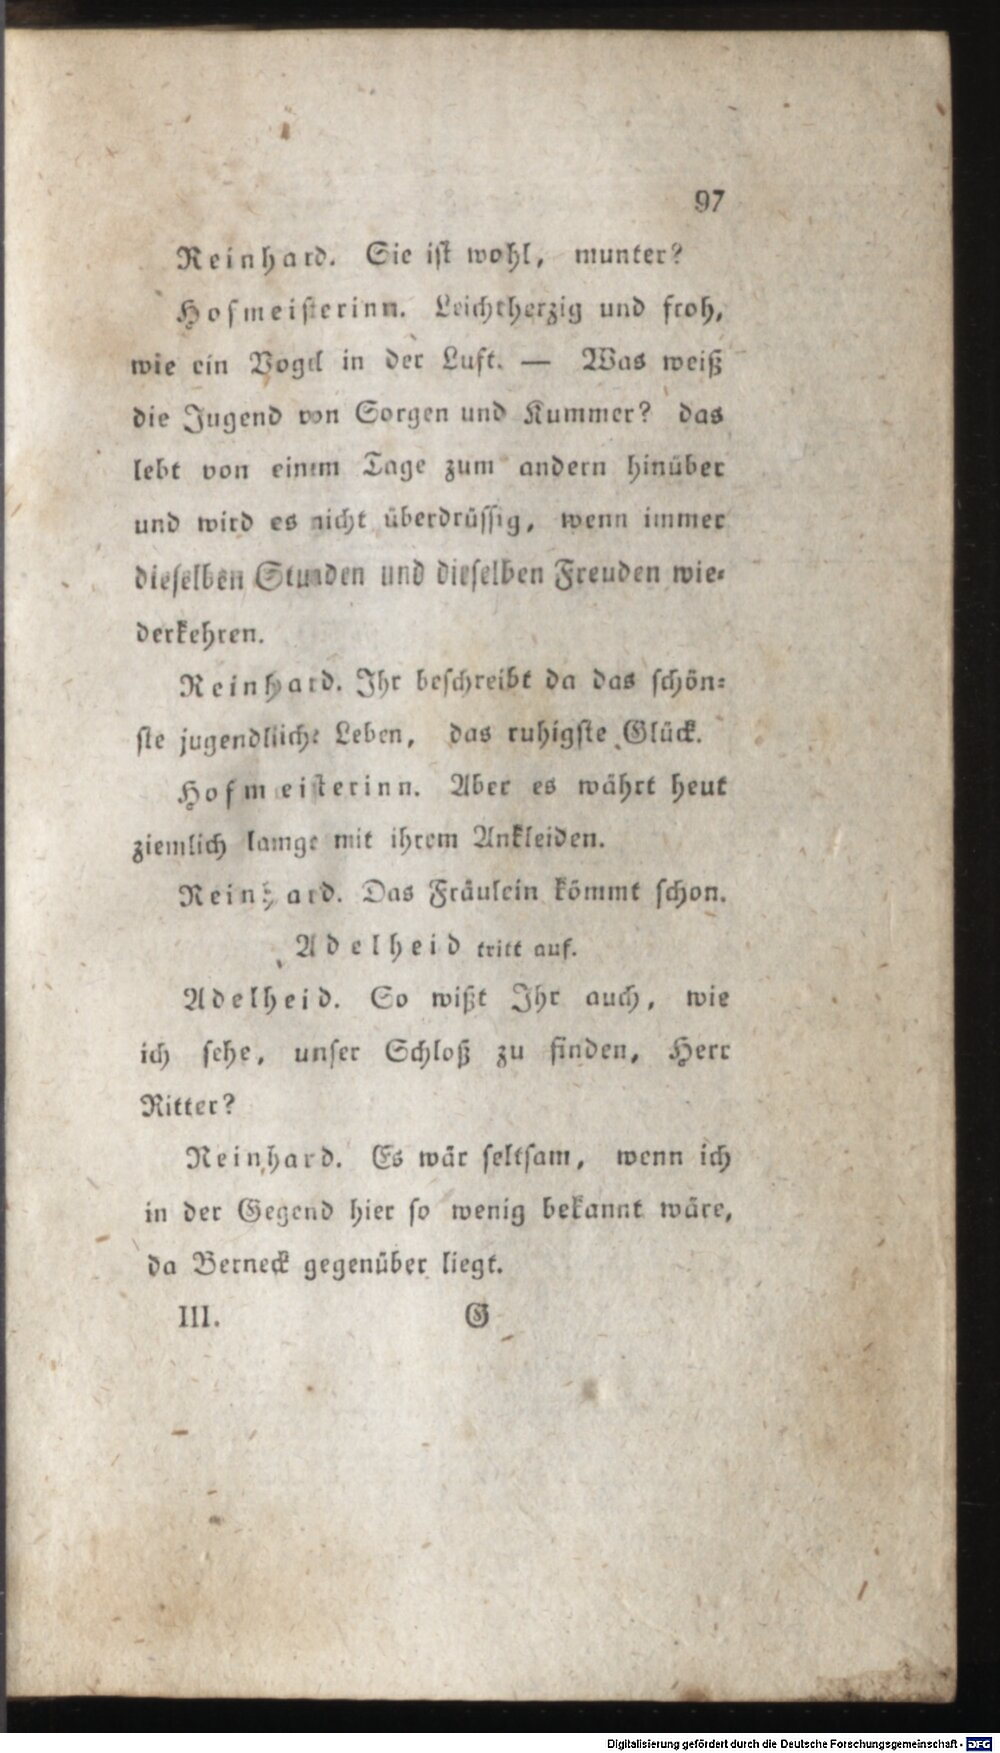 97
Reinhard. Sie ist wohl, munter?
Hofmeisterinn. Leichtherzig und froh,
wie ein Vogel in der Luft. — Was weiß
die Jugend von Sorgen und Kummer? das
lebt von einem Tage zum andern hinüber
und wird es nicht überdrüssig, wenn immer
dieselben Stunden und dieselben Freuden wie-
derkehren.
Reinhard. Ihr beschreibt da das schön-
ste jugendliche Leben, das ruhigste Glück.
Hofmeisterinn. Aber es währt heut
ziemlich lange mit ihrem Ankleiden.
Reinhard. Das Fräulein kömmt schon.
Adelheid tritt auf.
Adelheid. So wißt Ihr auch, wie
ich sehe, unser Schloß zu finden, Herr
Ritter?
Reinhard. Es wär seltsam, wenn ich
in der Gegend hier so wenig bekannt wäre,
da Berneck gegenüber liegt.
III. G
Digitalisierung gefördert durch die Deutsche Forschungsgemeinschaft - DFG